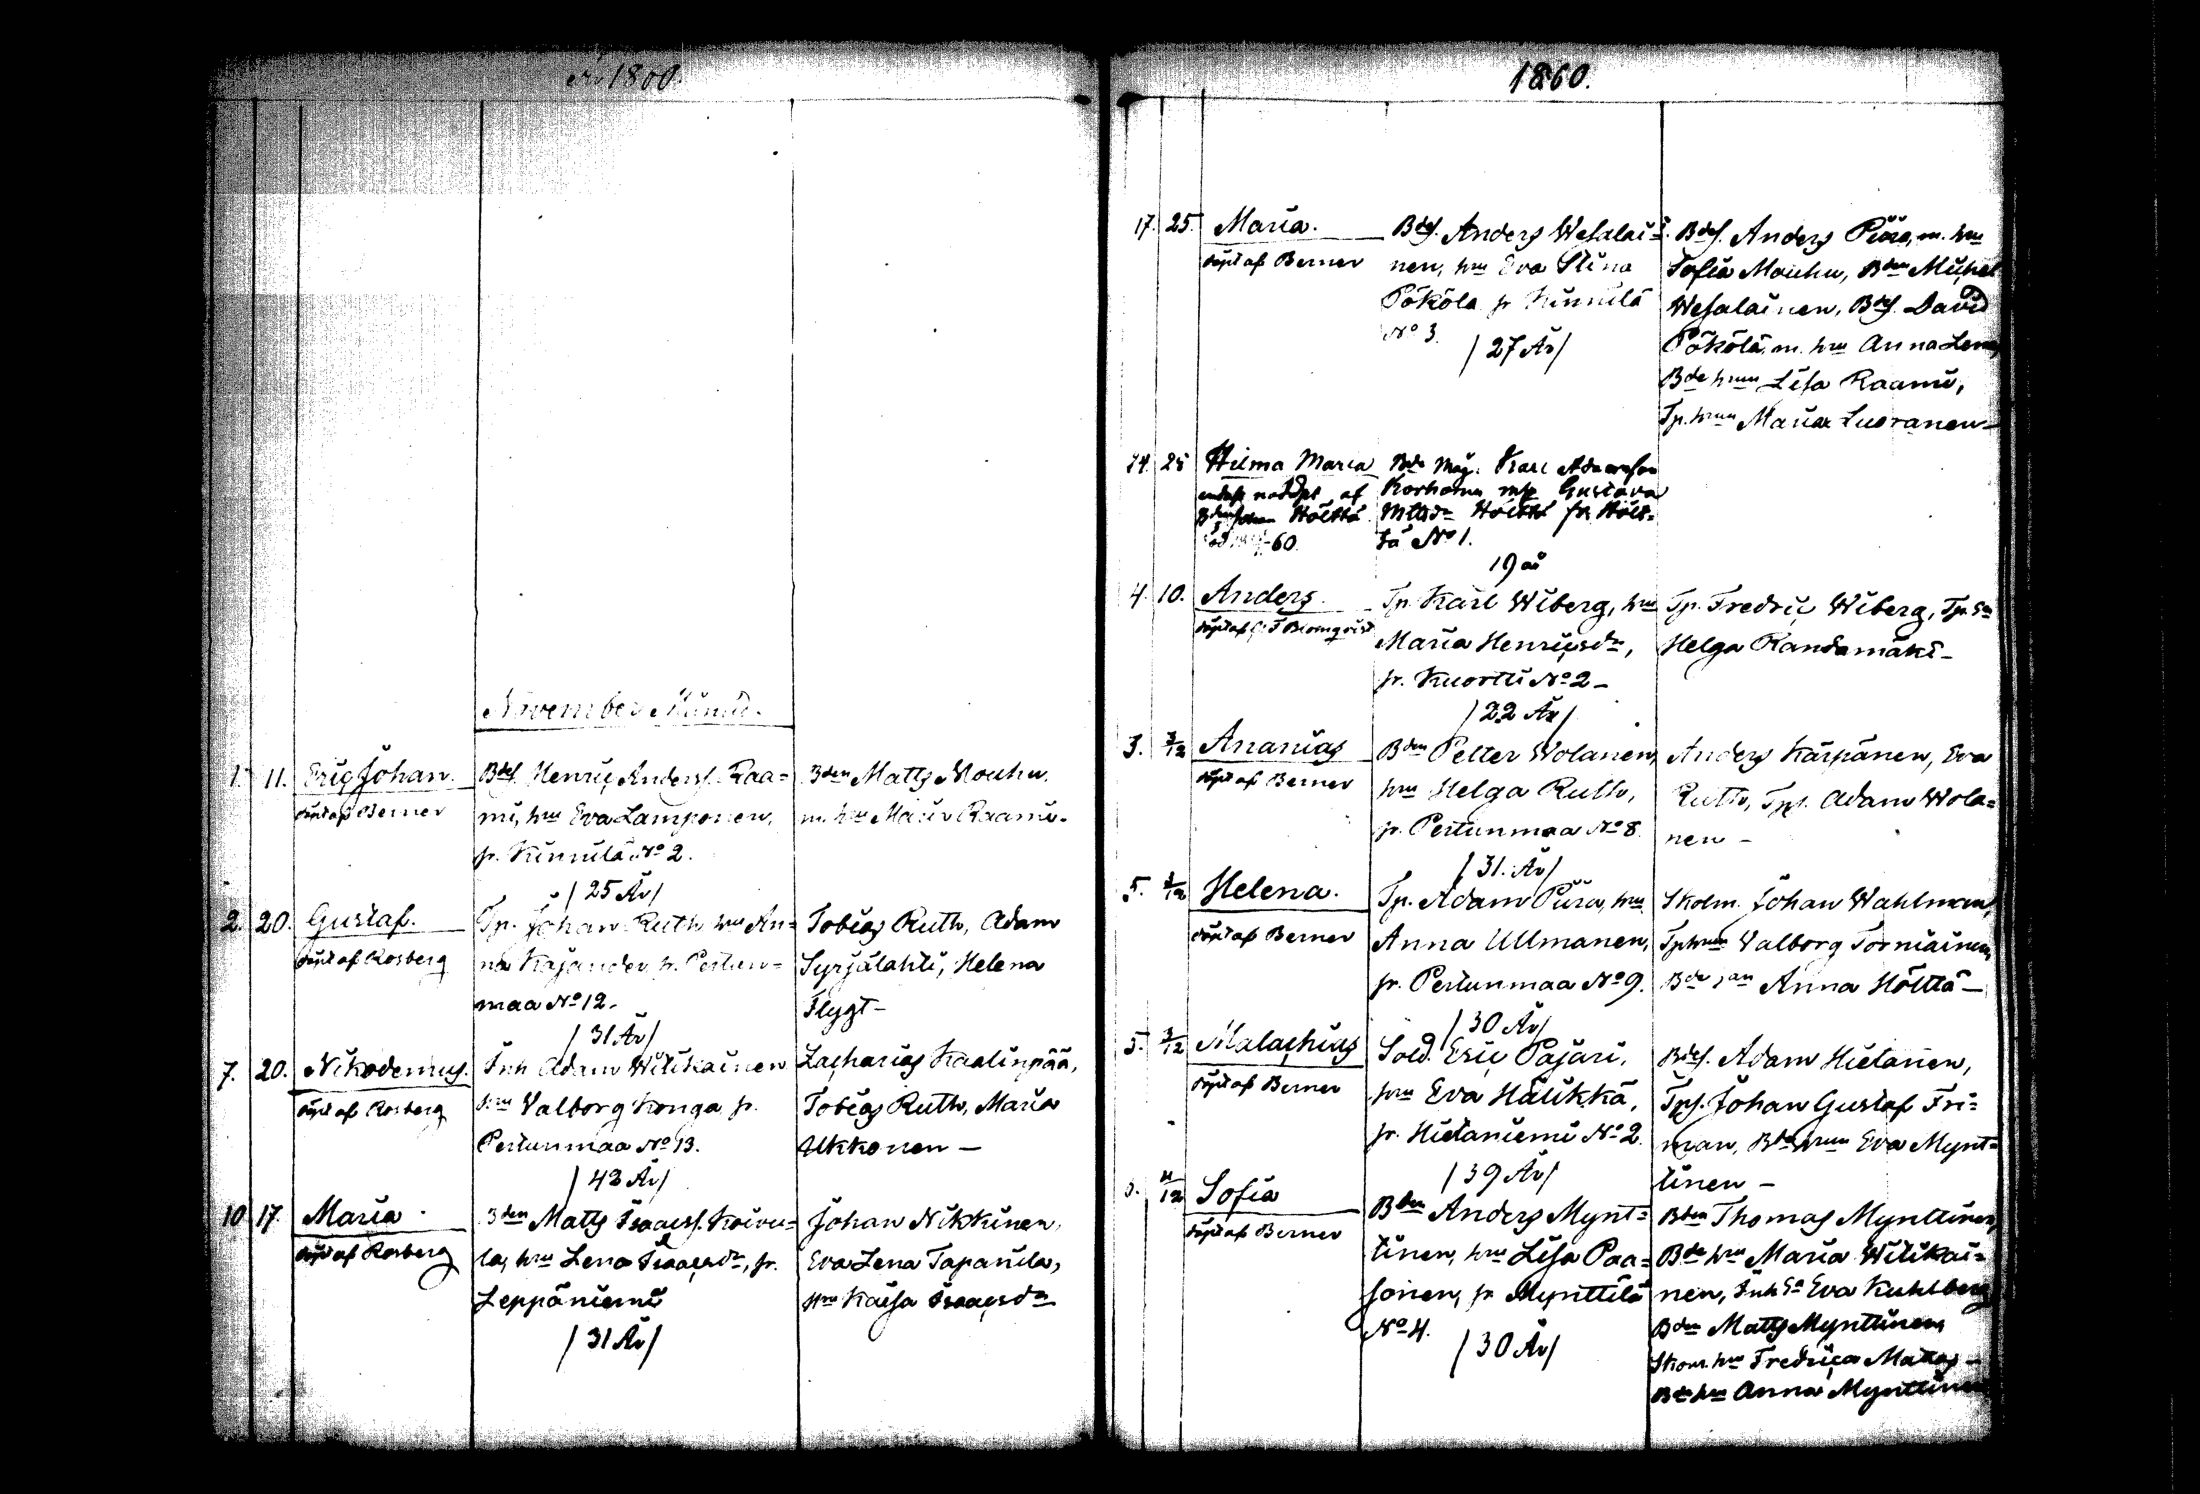 År 1860.
November Månad.
1. 11. Eric Johan. Bdes. Henric Anders. Raa=
döpt af Berner
mi, hru Eva Lamponen,
fr. Kinnilä No 2.
/25 År/
Bden Matts Mouhu,
m. hru Maria Raami.
2. 20. Gustaf.
döpt af Rosberg
Tp. Johan Ruth hru An=
na Kajander fr. Pertun=
maa No 12.
/31 År/
Tobias Ruth, Adam
Syrjälahti, Helena
Flygt–
7. 20. Nikodemus.
döpt af Rosberg
Inh Adam Wilikainen
hru Valborg Konga fr.
Pertunmaa No 13.
/43 År/
Zacharias Kaalinpää,
Tobias Ruth, Maria
Ukkonen –
10. 17. Maria.
döpt af Rosberg
Bden Matts Isaacs. Koivu=
la, hru Lena Isaacsdr, fr.
Leppäniemi
/31 År/
Johan Nikkinen,
Eva Lena Tapanila,
Hru Kaisa Isaacsdr
1860.
17. 25. Maria.
döpt af Berner
Bdes. Anders Wesalai=
nen, hru Eva Stina
Pökölä fr Kinnilä
No 3.
/27 År/
Bdes. Anders Piira, m. hru
Sofia Mouhu, Bden Michel
Wesalainen, Bdes. David
Pökölä, m. hru Anna Lena
Bde hrun Lisa Raami,
Tp. hrun Maria Luoranen–
24. 25 Hilma Maria
nöddpt af
Bden Johan Hölttä
60.
Bde Måg. Karl Adamson
Korhonen Gustava
Mattsdr Hölttä fr. Hölt=
tä No 1.
19 år
4. 10. Anders.
döpt af Blomqvist
Tp. Karl Wiberg, hru
Maria Henricsdr,
fr. Kuortti No 2 –
/22 År/
Tp. Fredric Wiberg, Tp. Sn
Helga Randamäki –
3. 2/12 Ananias
döpt af Berner
Bden Petter Wolanen,
hru Helga Ruth,
fr. Pertunmaa No 8.
/31. År/
Anders Karpanen, Eva
Ruth, Tps. Adam Wola=
nen –
5. 2/12 Helena.
döpt af Berner
Tp. Adam Piira, hru
Anna Ullmanen,
fr. Pertunmaa No 9.
/30 År/
Skolm. Johan Wahlman,
Tp hrun Valborg Torniainen,
Bde Anna Höltta –
5. 2/12 Malachias
döpt af Berner
Sold. Eric Pajari,
hru Eva Hälikkä,
fr. Hietaniemi No 2.
/39 År/
Bdes. Adam Hietanen,
Tps. Johan Gustaf Fri=
man, Bde hrun Eva Mynt=
tinen –
/12 Sofia
döpt af Berner
Bden Anders Mynt=
tinen, hru Lisa Paa=
sonen, fr Mynttilä
No 4.
/30 År/
Bden Thomas Mynttinen,
Bde hru Maria Wilikai=
nen, Inh Sn Eva Kuhlberg
Bden Matts Mynttinen
hru Fredrica
Bde hru Anna Mynttinen